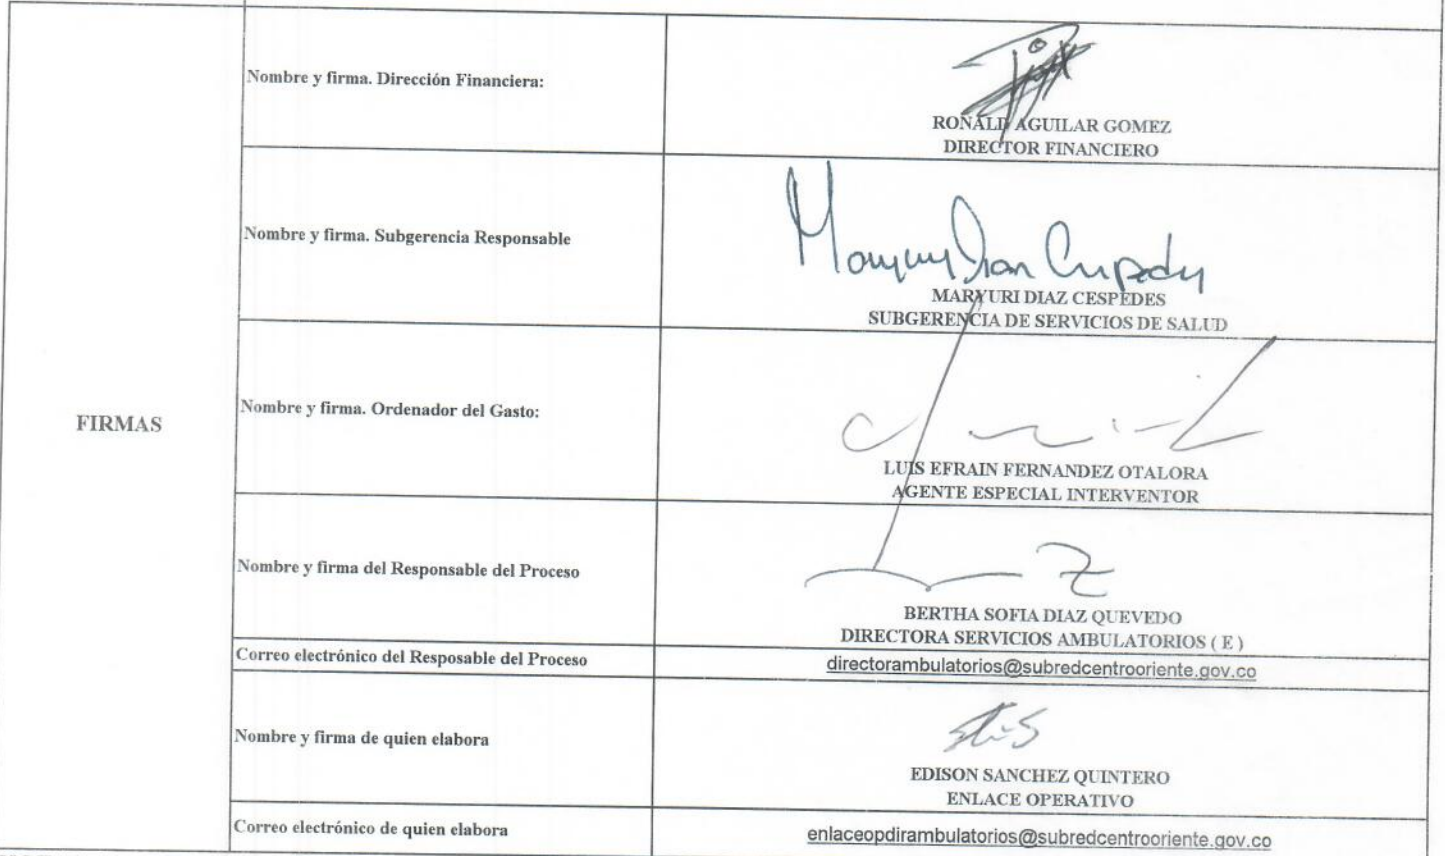 Nombre y firma. Dirección Financiera:
RONALD AGUILAR GOMEZ
DIRECTOR FINANCIERO
Nombre y firma. Subgerencia Responsable
MARYURI DIAZ CESPEDES
SUBGERENCIA DE SERVICIOS DE SALUD
FIRMAS
Nombre y firma. Ordenador del Gasto:
LUIS EFRAIN FERNANDEZ OTALORA
AGENTE ESPECIAL INTERVENTOR
Nombre y firma del Responsable del Proceso
BERTHA SOFIA DIAZ QUEVEDO
DIRECTORA SERVICIOS AMBULATORIOS ( E )
Correo electrónico del Resposable del Proceso
directorambulatorios@subredcentrooriente.gov.co
Nombre y firma de quien elabora
EDISON SANCHEZ QUINTERO
ENLACE OPERATIVO
Correo electrónico de quien elabora
enlaceopdirambulatorios@subredcentrooriente.gov.co